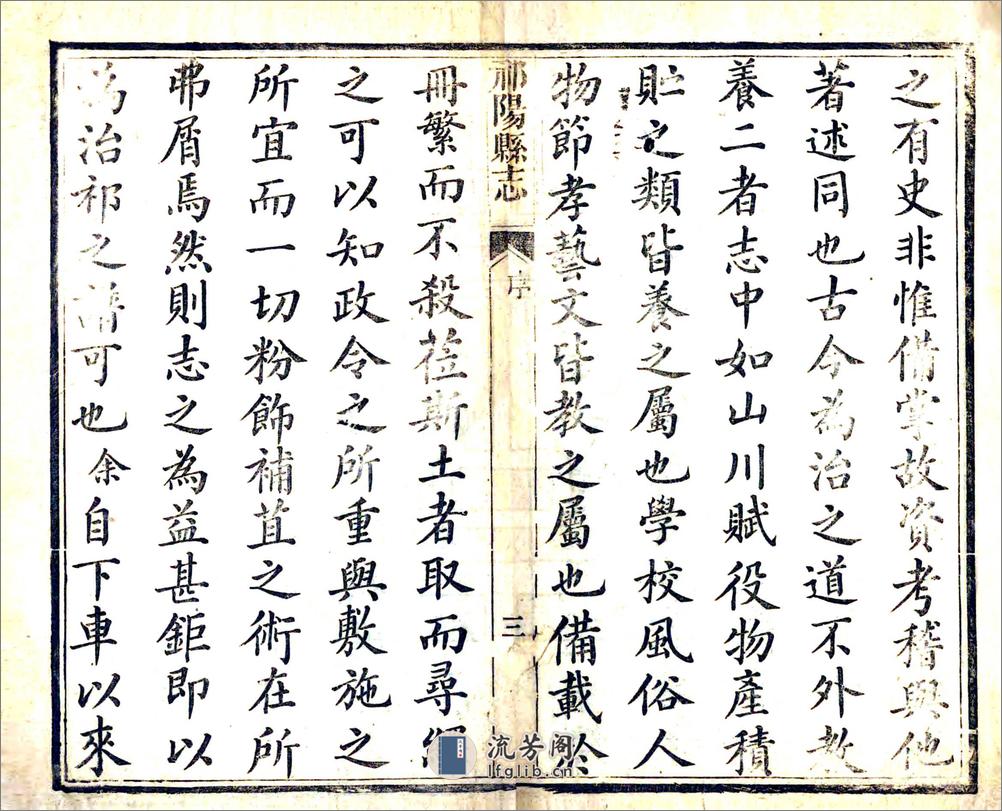 之有史非惟備掌故資考稽與他
著述同也古今為治之道不外教
養二者志中如山川賦役物產積
貯之類皆養之屬也學校風俗人
物節孝藝文皆教之屬也備載於
祁陽縣志
序
三
冊繁而不殺蒞斯土者取而尋繹
之可以知政令之所重與敷施之
所宜而一切粉飾補苴之術在所
弗屑焉然則志之為益甚鉅即以
為治祁之譜可也余自下車以來
流芳阁
lfglib.cn